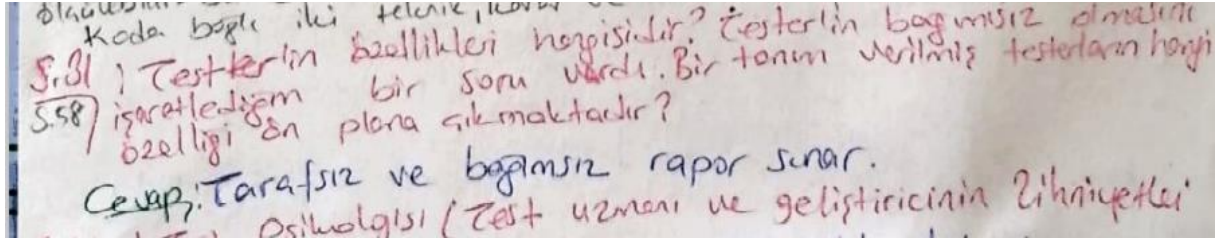 Koda bağlı iki teknik,
S.31) Testerlin özellikleri hangisidir? Testerlin bağımısız olmasını
S.58) işaretlediğim bir soru vardı. Bir tanım verilmiş testerların hangi
özelliği ön plana çıkmaktadır?
Cevap: Tarafsız ve bağımsız rapor sunar.
Psikolgisi (Test uzmanı ve geliştiricinin Zihniyetleri